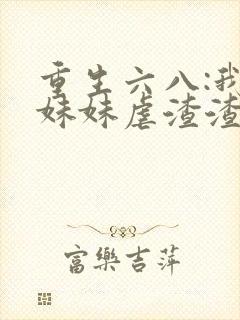 重生六八:我
妹妹虐渣渣
富樂吉萍